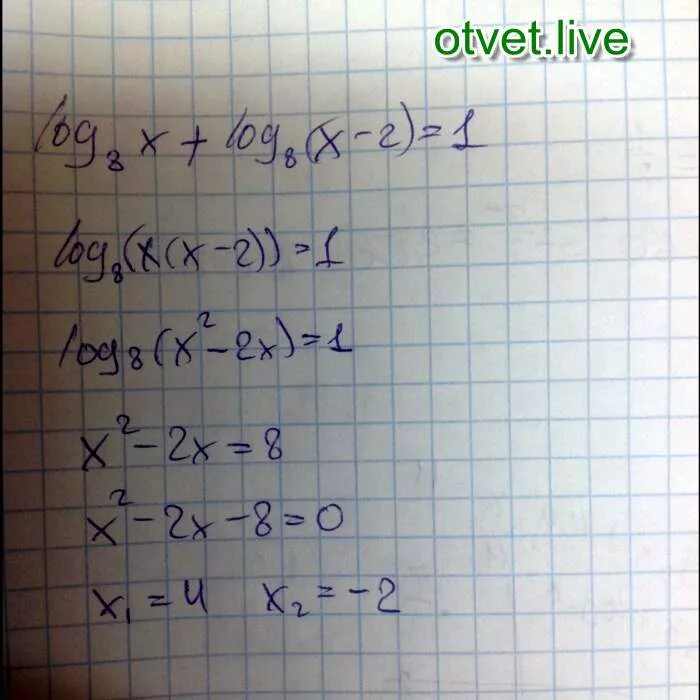 otvet.live
log₈ x + log₈(x-2)=1
log₈(x(x-2))=1
log₈(x²-2x)=1
x²-2x=8
x²-2x-8=0
x₁=4 x₂=-2